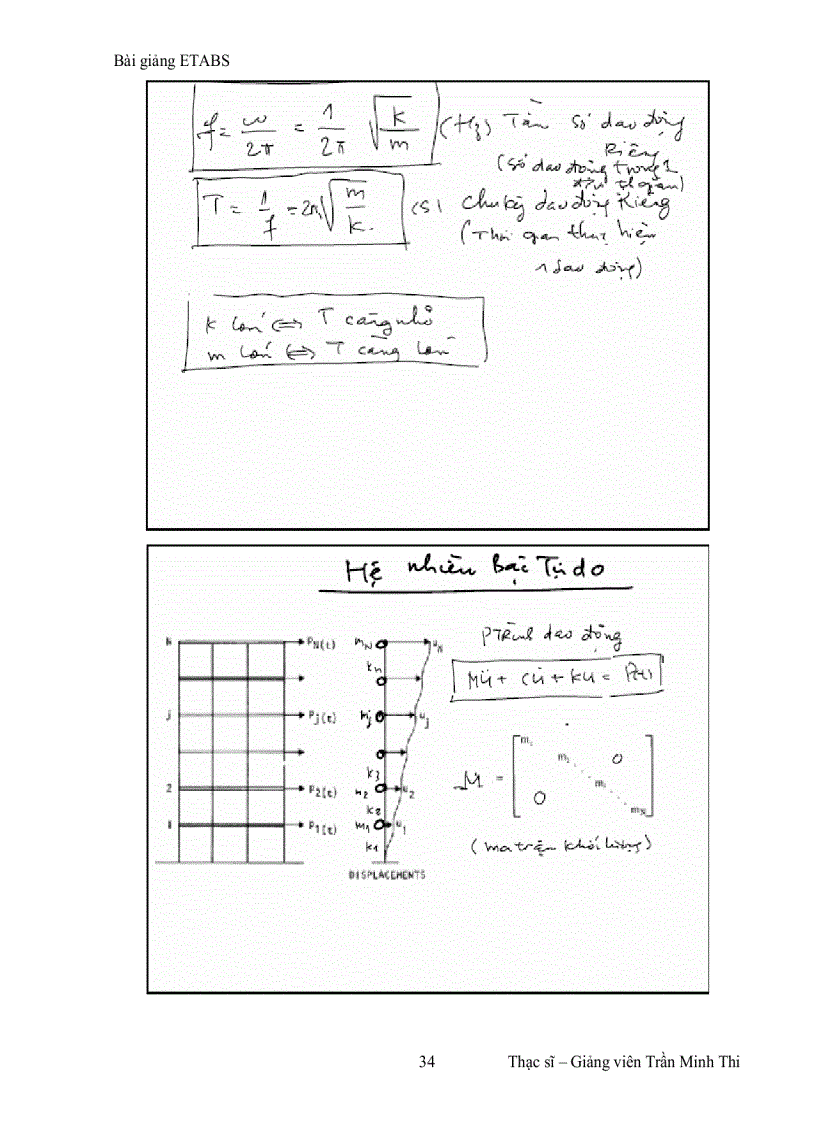 Bài giảng ETABS
f = ω/2π = 1/2π √(k/m) (Hz) Tần số dao động Riêng
(số dao động trong 1
thời gian)
T = 1/f = 2π√(m/k) (s) Chu kỳ dao động Riêng
(Thời gian thực hiện
1 dao động)
k lớn ⇔ T càng nhỏ
m lớn ⇔ T càng lớn
Hệ nhiều Bậc Tự do
N PN(t) mN uN
kn
j Pj(t) mj uj
k3
2 P2(t) m2 u2
k2
1 P1(t) m1 u1
k1
DISPLACEMENTS
PTrình dao động
Mü + Cu̇ + Ku = P(t)
M = [m1 m2 mi mN 0 0]
(ma trận khối lượng)
34 Thạc sĩ – Giảng viên Trần Minh Thi